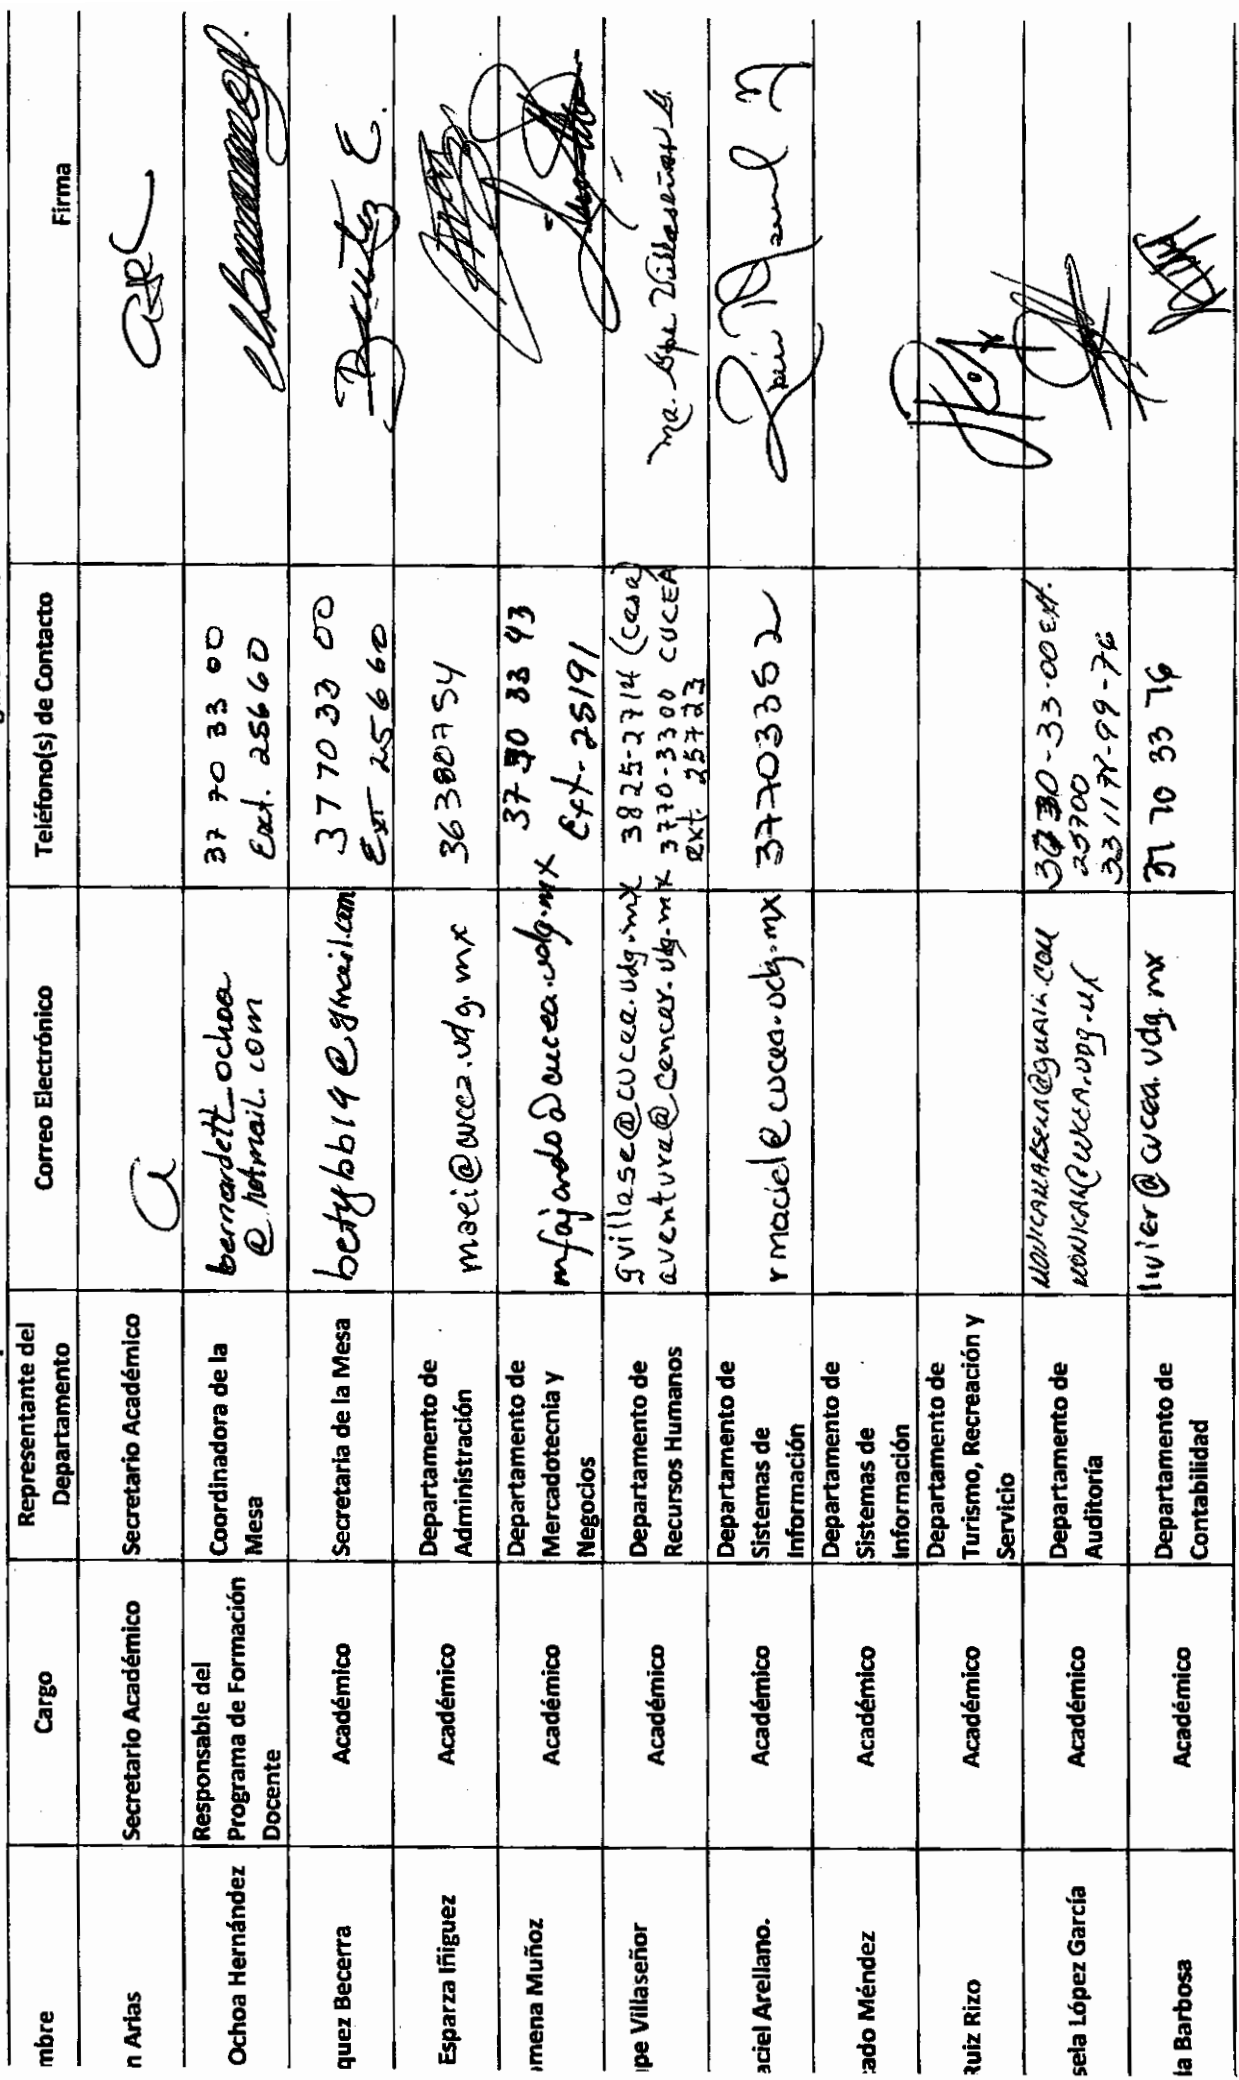 mbre Cargo Representante del Departamento Correo Electrónico Teléfono(s) de Contacto Firma
n Arias Secretario Académico Secretario Académico
Ochoa Hernández Responsable del Programa de Formación Docente Coordinadora de la Mesa bernardett_ochoa @hotmail.com 37 70 33 00 Ext. 25660
quez Becerra Académico Secretaria de la Mesa betybb19@gmail.com 37 70 33 00 Ext 25660 E.
Esparza Iñiguez Académico Departamento de Administración maei@cucea.udg.mx 36380754
mena Muñoz Académico Departamento de Mercadotecnia y Negocios mfajardo@cucea.udg.mx 33 43 Ext-25191
pe Villaseñor Académico Departamento de Recursos Humanos gvillase@cucea.udg.mx aventura@cencar.udg.mx 3825-2714 (casa) 3770-3300 CUCEA ext. 25723 Ma. Gpe Villaseñor G.
aciel Arellano. Académico Departamento de Sistemas de Información rmaciel@cucea.udg.mx 37703352
ado Méndez Académico Departamento de Sistemas de Información
Ruiz Rizo Académico Departamento de Turismo, Recreación y Servicio
sela López García Académico Departamento de Auditoría 33-00 Ext. 25700
la Barbosa Académico Departamento de Contabilidad livier@cucea.udg.mx 37 70 33 76